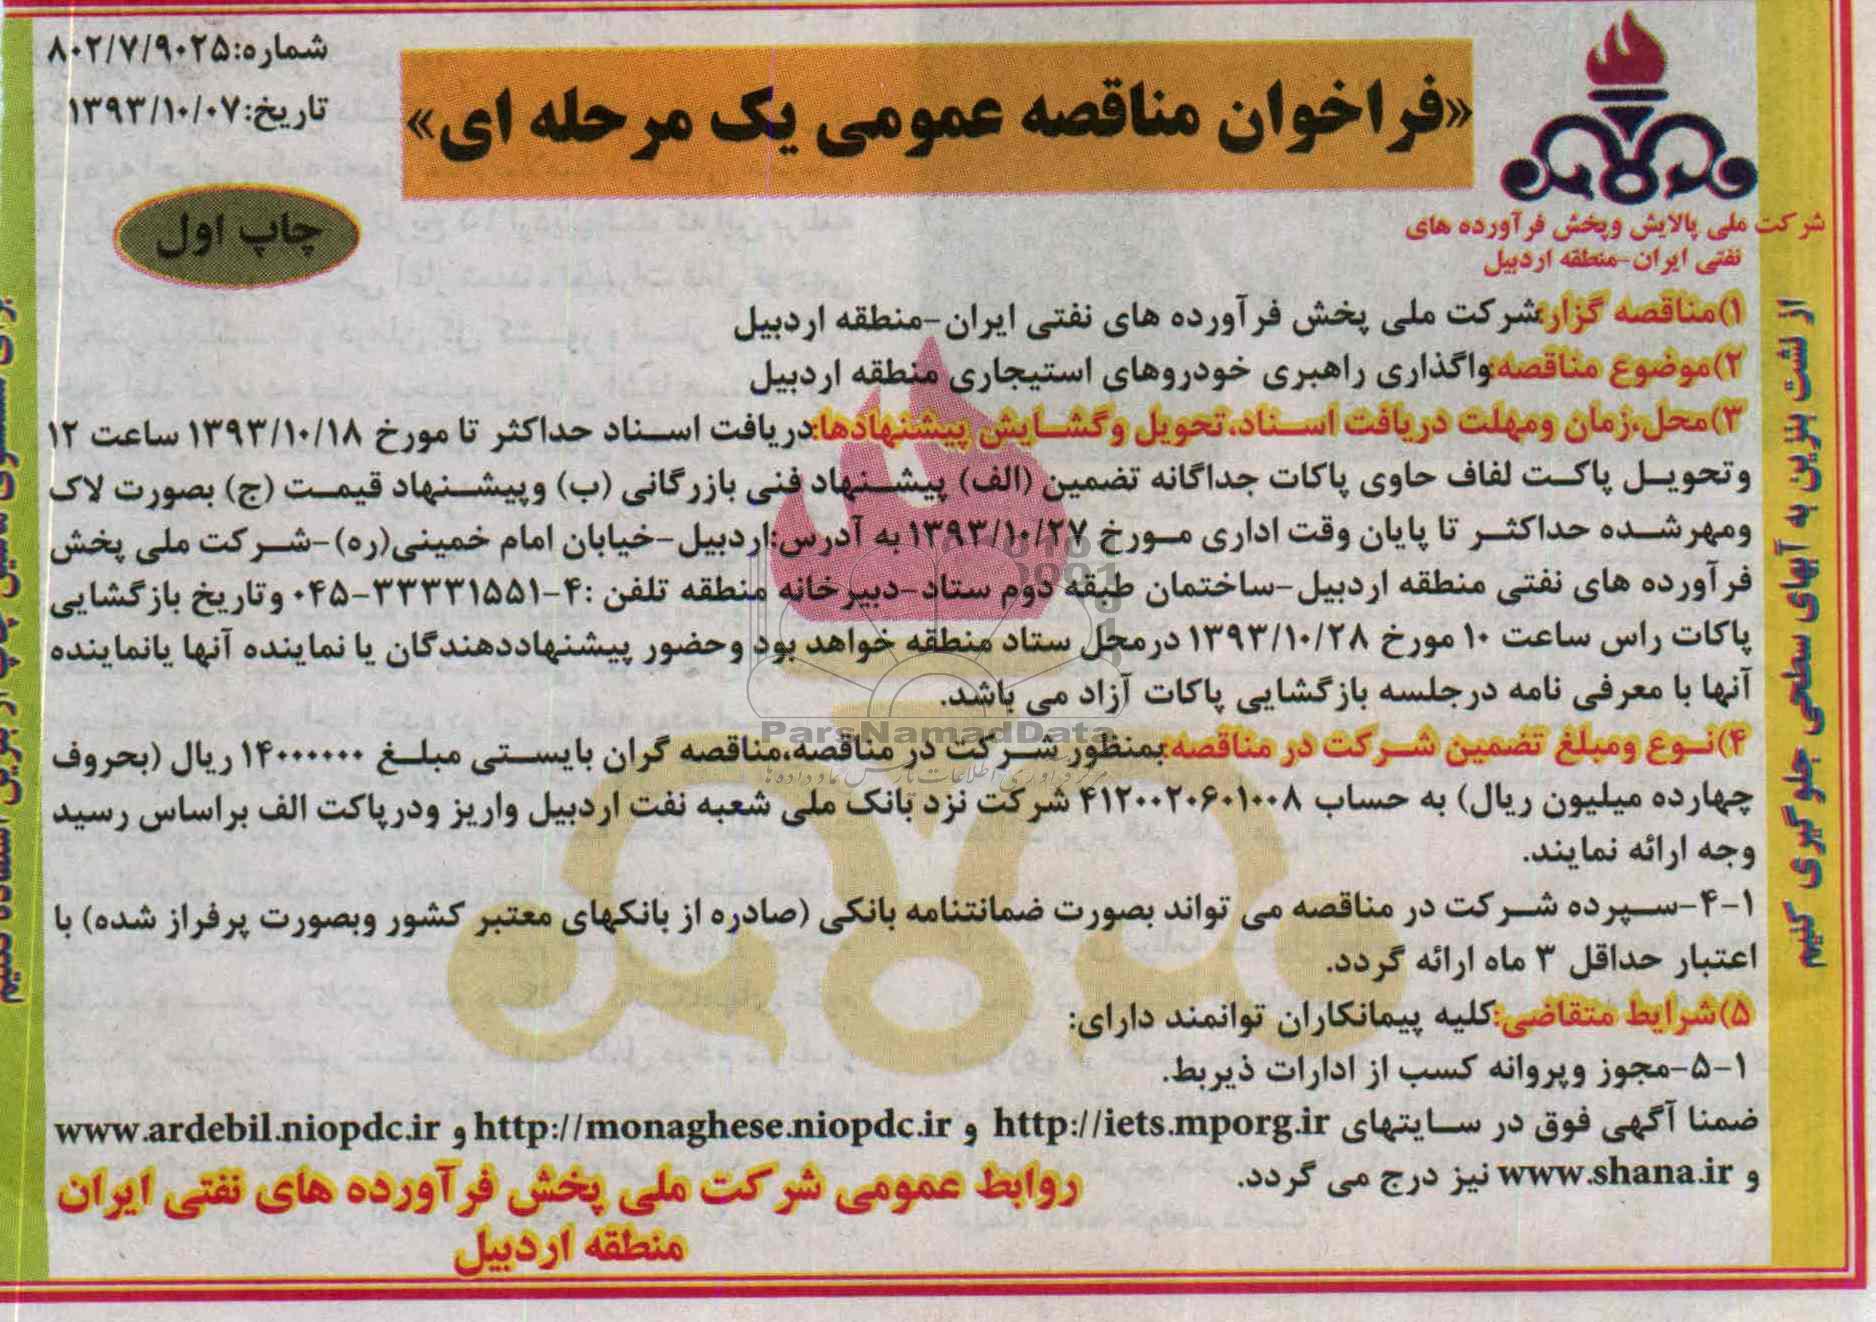 شماره:۸۰۲/۷/۹۰۲۵
تاریخ:۱۳۹۳/۱۰/۰۷
«فراخوان مناقصه عمومی یک مرحله ای»
چاپ اول
شرکت ملی پالایش وپخش فرآورده های
نفتی ایران-منطقه اردبیل
۱)مناقصه گزار:شرکت ملی پخش فرآورده های نفتی ایران-منطقه اردبیل
۲)موضوع مناقصه:واگذاری راهبری خودروهای استیجاری منطقه اردبیل
۳)محل،زمان ومهلت دریافت اسناد،تحویل وگشایش پیشنهادها:دریافت اسناد حداکثر تا مورخ ۱۳۹۳/۱۰/۱۸ ساعت ۱۲
وتحویل پاکت لفاف حاوی پاکات جداگانه تضمین (الف) پیشنهاد فنی بازرگانی (ب) وپیشنهاد قیمت (ج) بصورت لاک
ومهرشده حداکثر تا پایان وقت اداری مورخ ۱۳۹۳/۱۰/۲۷ به آدرس:اردبیل-خیابان امام خمینی(ره)-شرکت ملی پخش
فرآورده های نفتی منطقه اردبیل-ساختمان طبقه دوم ستاد-دبیرخانه منطقه تلفن :۴-۳۳۳۳۱۵۵۱-۰۴۵ وتاریخ بازگشایی
پاکات راس ساعت ۱۰ مورخ ۱۳۹۳/۱۰/۲۸ درمحل ستاد منطقه خواهد بود وحضور پیشنهاددهندگان یا نماینده آنها یانماینده
آنها با معرفی نامه درجلسه بازگشایی پاکات آزاد می باشد.
ParsNamadData
۴)نوع ومبلغ تضمین شرکت در مناقصه:بمنظور شرکت در مناقصه،مناقصه گران بایستی مبلغ ۱۴۰۰۰۰۰۰ ریال (بحروف
چهارده میلیون ریال) به حساب ۴۱۲۰۰۲۰۶۰۱۰۰۸ شرکت نزد بانک ملی شعبه نفت اردبیل واریز ودرپاکت الف براساس رسید
وجه ارائه نمایند.
۴-۱-سپرده شرکت در مناقصه می تواند بصورت ضمانتنامه بانکی (صادره از بانکهای معتبر کشور وبصورت پرفراز شده) با
اعتبار حداقل ۳ ماه ارائه گردد.
۵)شرایط متقاضی:کلیه پیمانکاران توانمند دارای:
۵-۱-مجوز وپروانه کسب از ادارات ذیربط.
ضمنا آگهی فوق در سایتهای http://iets.mporg.ir و http://monaghese.niopdc.ir و www.ardebil.niopdc.ir
و www.shana.ir نیز درج می گردد.
روابط عمومی شرکت ملی پخش فرآورده های نفتی ایران
منطقه اردبیل
از نشت بنزین به آبهای سطحی جلوگیری کنیم